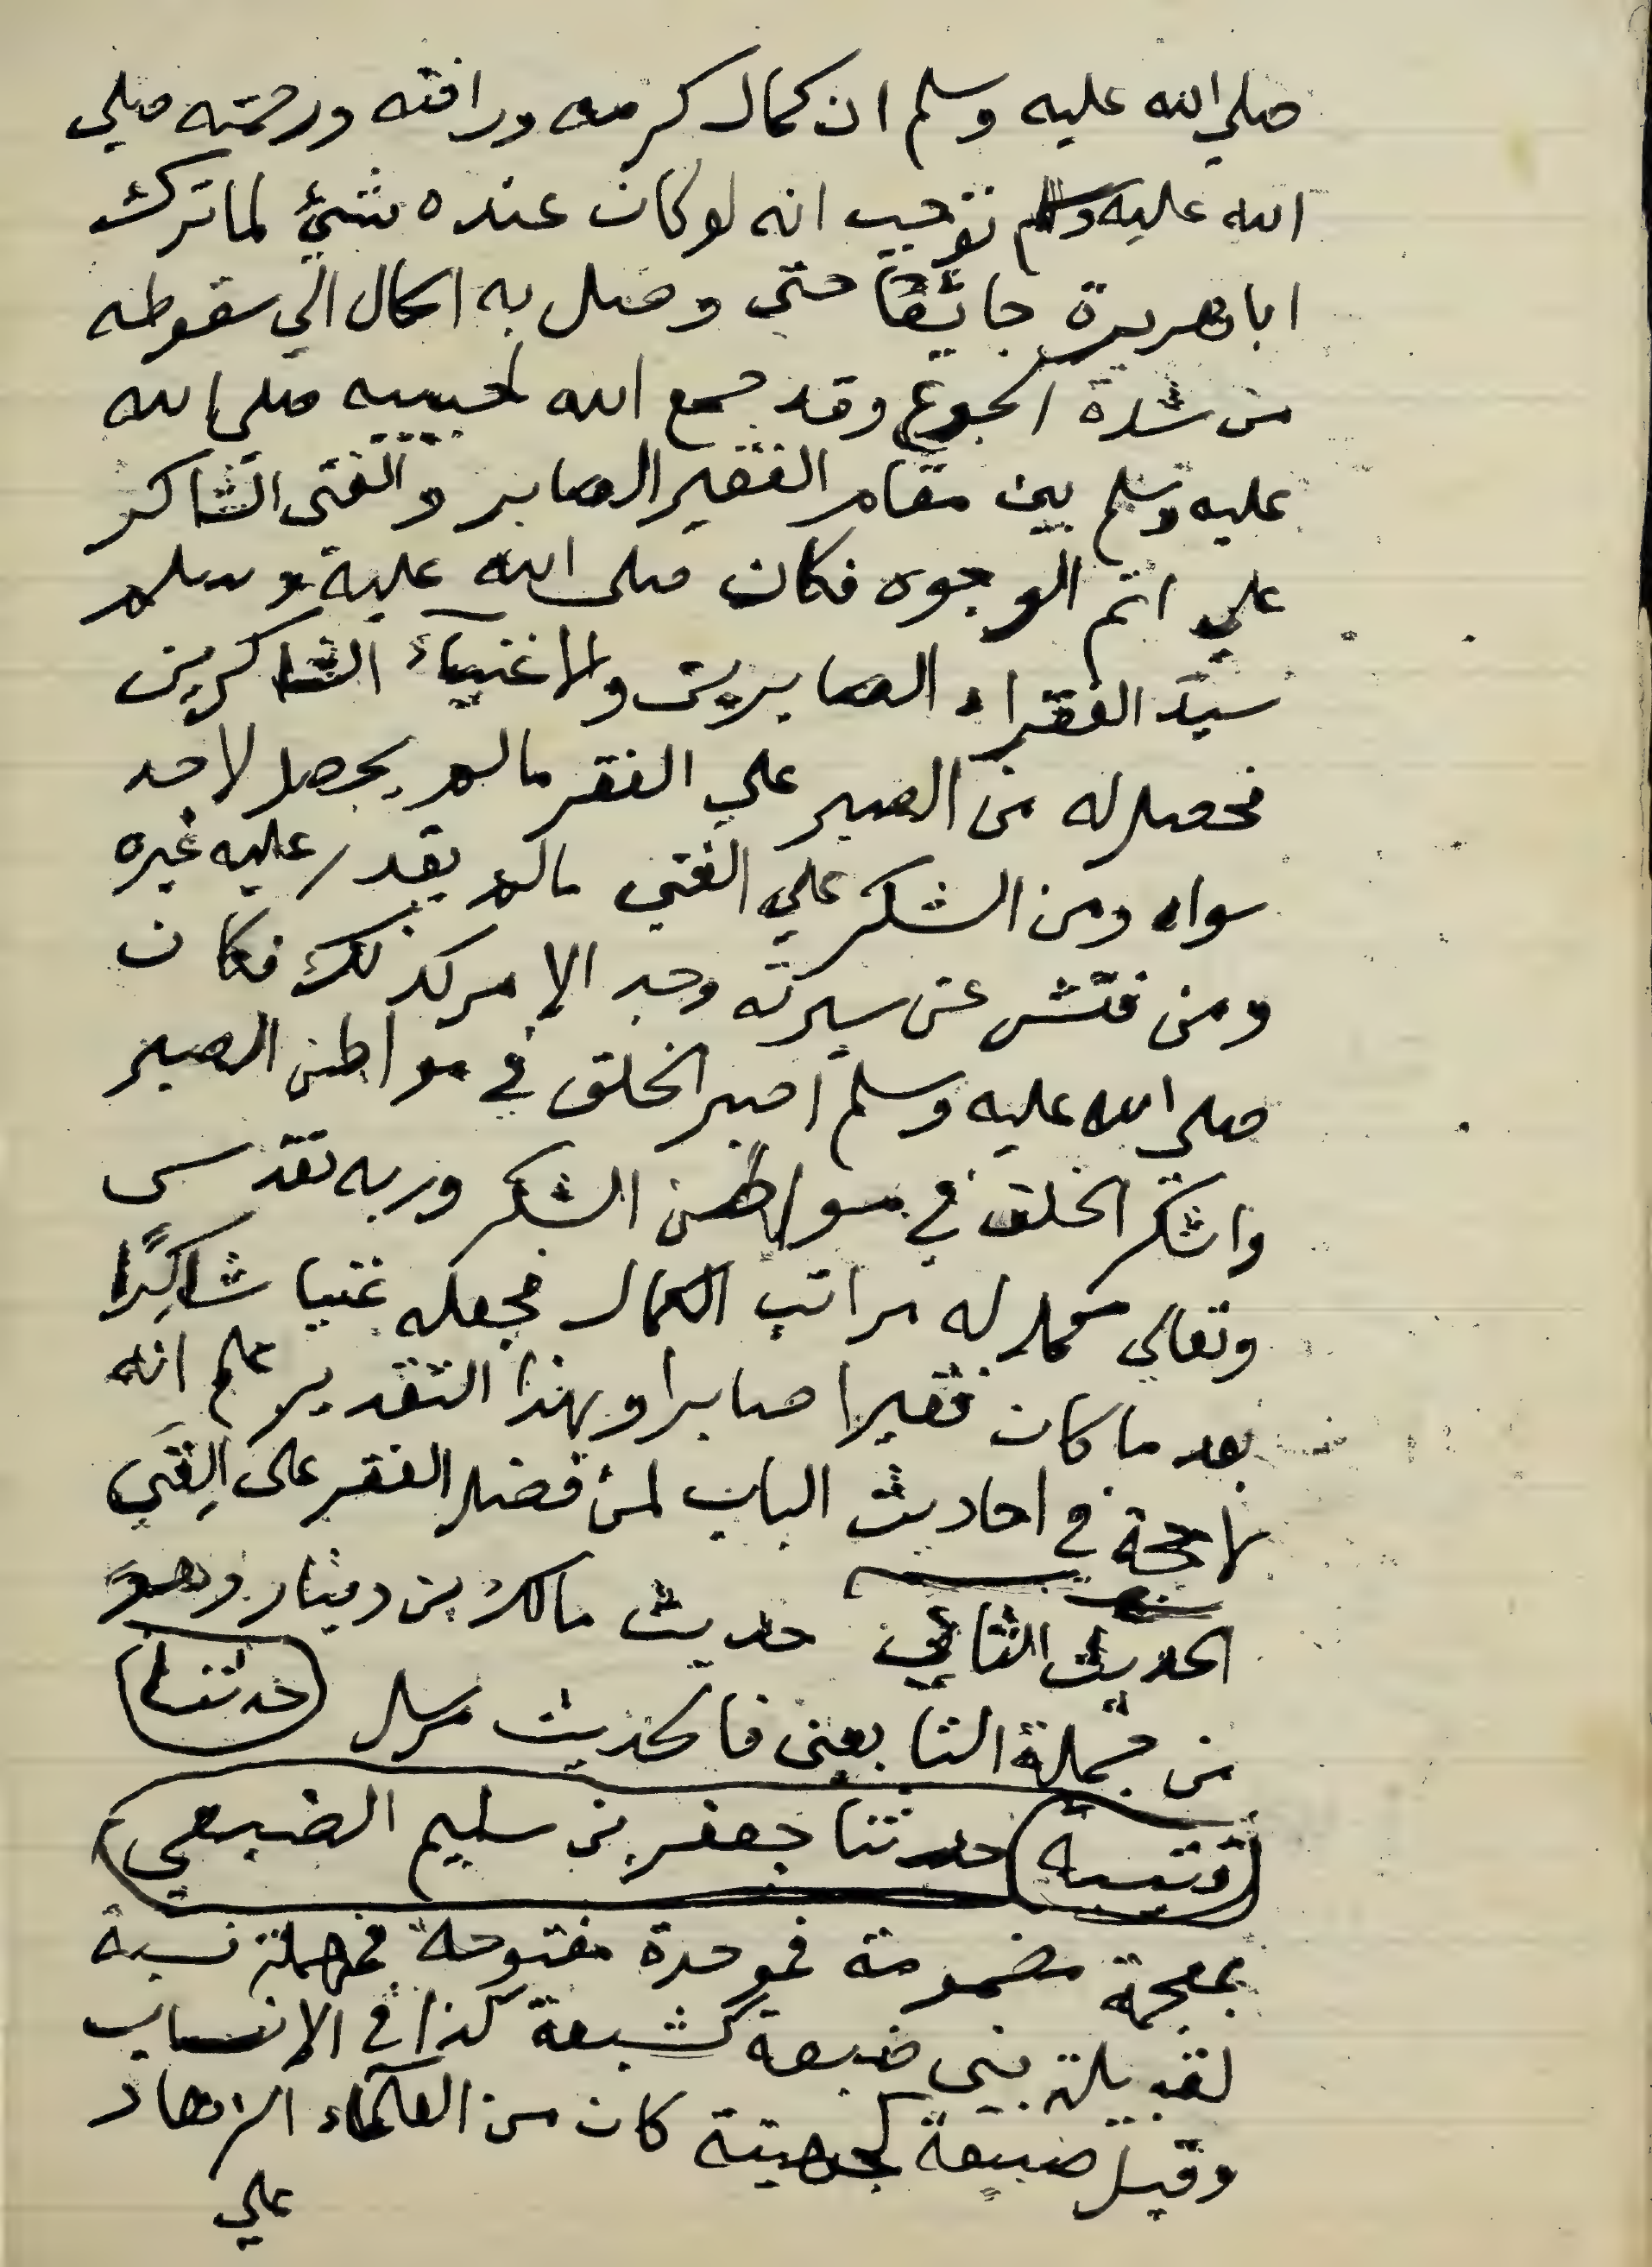 صلي الله عليه وسلم ان كمال كرمه ورافته ورحمته صلي
الله عليه وسلم توجب انه لو كان عنده شيئ لما ترك
ابا هريرة جائعًا حتي وصل به الحال الي سقوطه
من شدة الجوع وقد جمع الله لحبيبه صلي الله
عليه وسلم بين مقام الفقير الصابر والغني الشاكر
علي اتم الوجوه فكان صلى الله عليه وسلم
سيّد الفقراء الصابرين والاغنياء الشاكرين
فحصل له من الصبر علي الفقر مالم يحصل لاحد
سواه ومن الشكر علي الغني مالم يقدر عليه غيره
ومن فتّش عن سيرته وجد الامر كذلك فكان
صلى الله عليه وسلم اصبر الخلق في مواطن الصبر
واشكر الخلق في مواطن الشكر وربه تقدس
وتعالي كمل له مراتب الكمال فجعله غنيا شاكِرًا
بعد ما كان فقيرا صابرا وبهذا التقدير علم انه
لا حجة في احاديث الباب لمن فضل الفقر على الغني
الحديث الثاني حديث مالك بن دينار وهو
من جملة التابعين فالحديث مرسل حدثنا
قتيبة حدثنا جعفر بن سليم الضبعي
بمعجمة مضمومة فموحدة مفتوحة فمهملة نسبة
لقبيلة بني ضبعة كشبعة كذا في الانساب
وقيل ضبيعة كجهينة كان من العلماء الزهاد
علي